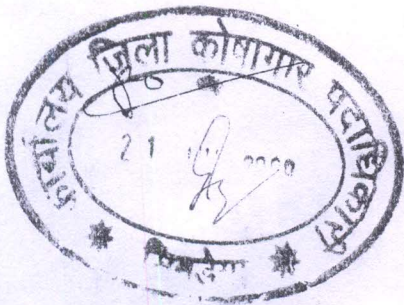 कार्यालय जिला कोषागार पदाधिकारी
21
सिमडेगा